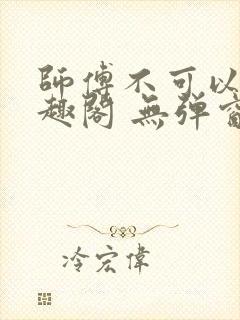 師傅不可以
趣閣 無彈窗
冷宏偉